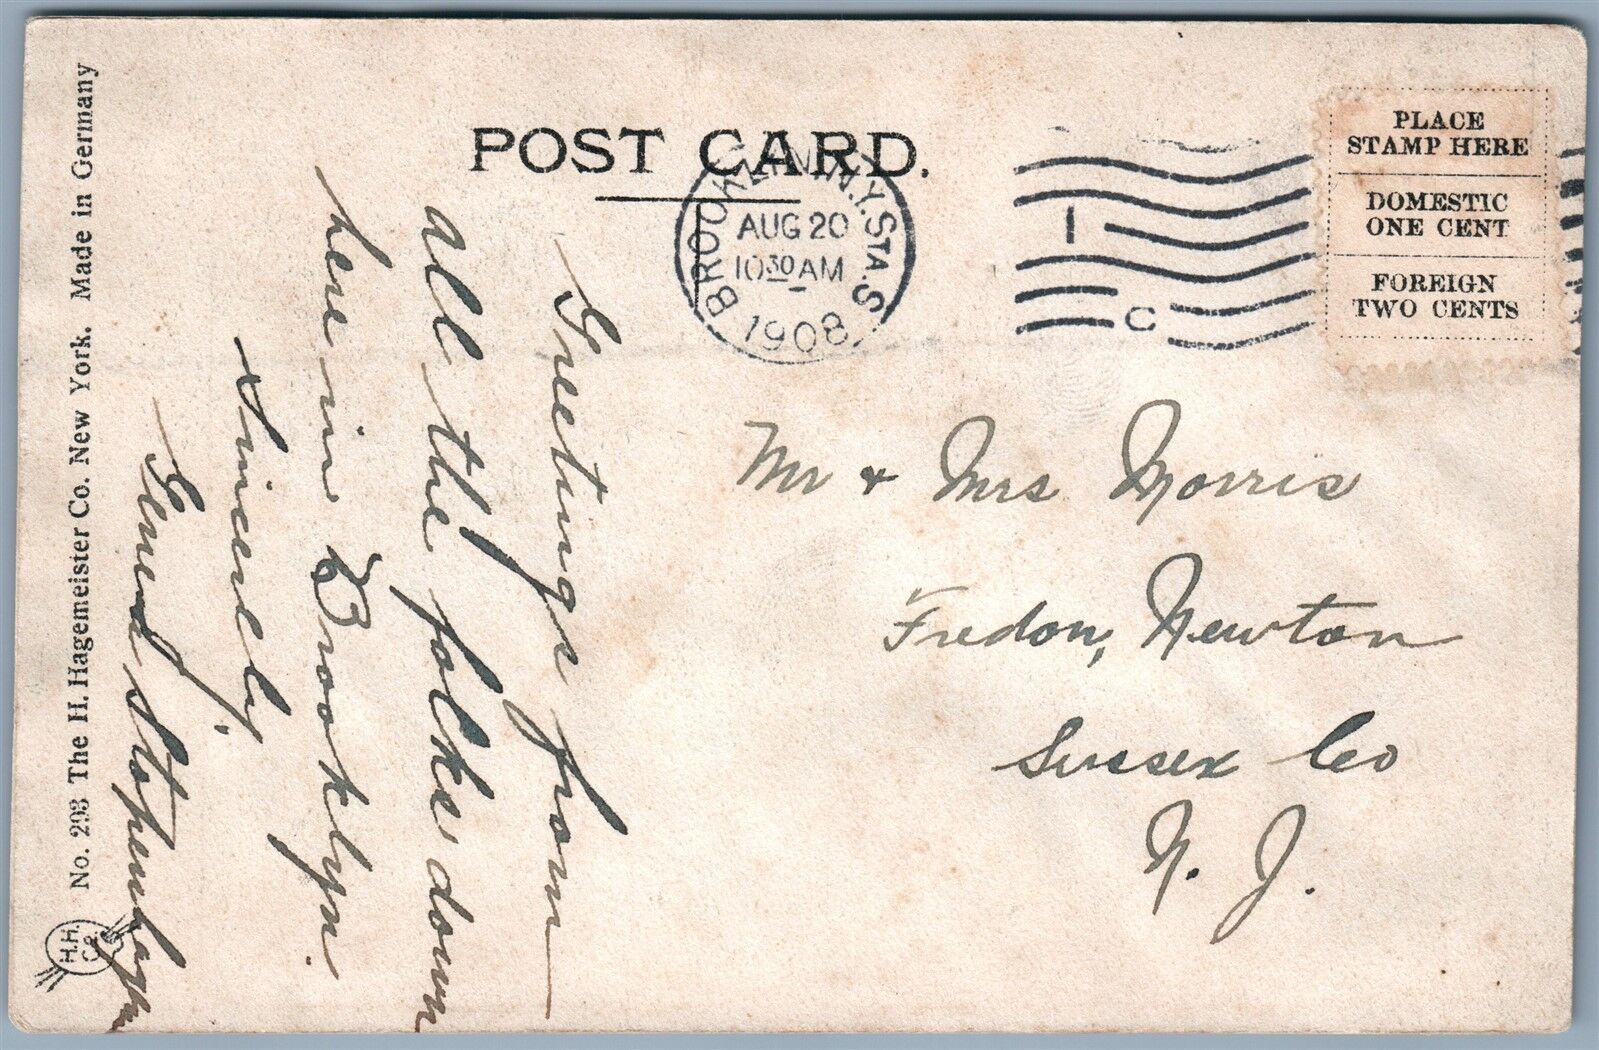 POST CARD.
BROOKLYN, N.Y. STA. S
AUG 20
10 30 AM
1908
1
C
PLACE
STAMP HERE
DOMESTIC
ONE CENT
FOREIGN
TWO CENTS
Mr & Mrs Morris
Fredon, Newton
Sussex Co
N. J.
Greetings from
all the folks down
here in Brooklyn.
Sincerely,
No. 293 The H. Hagemeister Co. New York. Made in Germany
H.H.
Co.